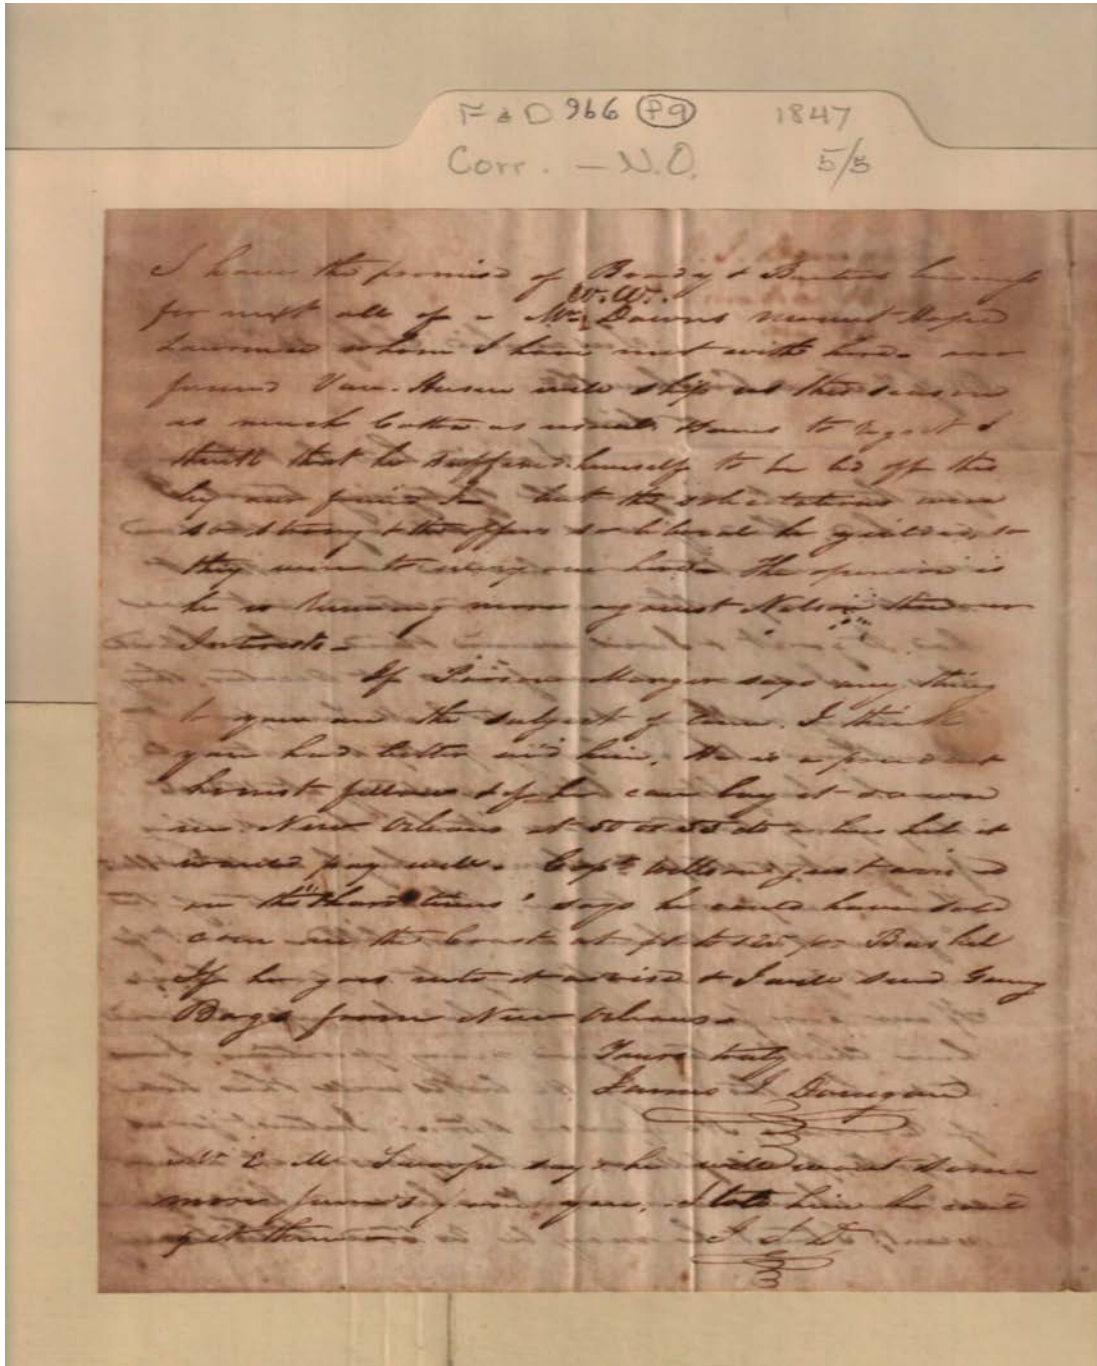 F & D 966 P9 1847
Corr. – N.O. 5/5
I have the promise of Bondy & business
W. W.
for next all of a Mr. Downs mount Hope
Lawrence whom I have met with here. our
friend Van. Husen will ship us this season
as much Cotton as usual. Haws to regret I
think that he suffered himself to be led off this
by our friend but the solicitations were
so strong & the offers so liberal he yielded, so
they were to every one here. The opinion is
he is running more against Nelson than our
Interests –
If Morgan says any thing
to you on the subject of corn. I think
you had better aid him, He is a prudent
honest fellow & if he can lay it down
in New Orleans at 50 a 55 cts a bushel it
would pay well. Capt. just arrived
in the says he could have sold
corn on the Coast at $1 to 125 pr Bushel
If he goes into it advise & I will send Gunny
Bags from New Orleans.
Yours truly
James J. Donegan
Mr E. M. Swoope says he will want some
more funds from you, I told him he could
get them
J J D